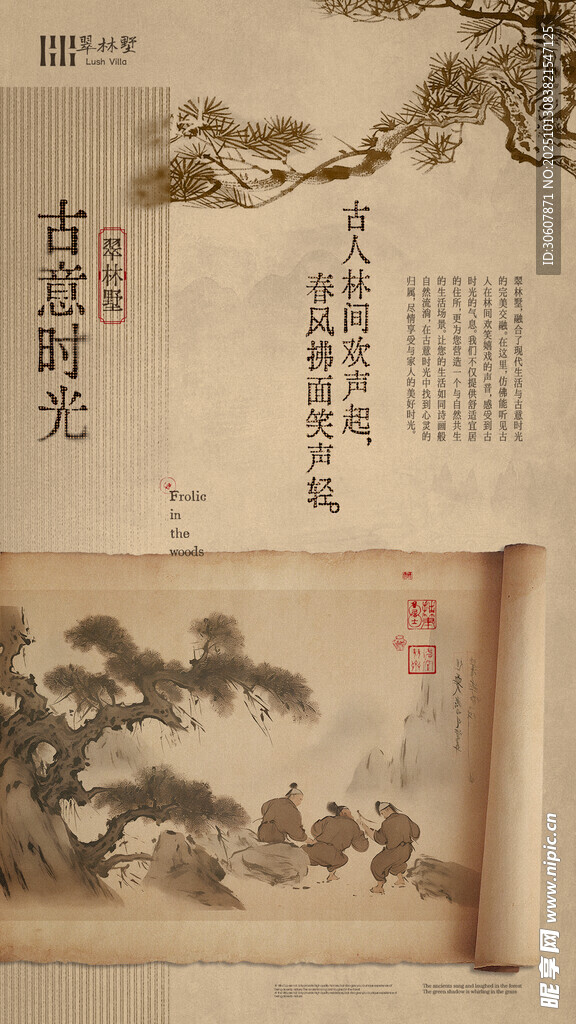 翠林墅
Lush Villa
古意时光
翠林墅
古人林间欢声起，
春风拂面笑声轻。
翠林墅，融合了现代生活与古意时光
的完美交融。在这里，仿佛能听见古
人在林间欢笑嬉戏的声音，感受到古
时光的气息。我们不仅提供舒适宜居
的住所，更为您营造一个与自然共生
的生活场景。让您的生活如同诗画般
自然流淌，在古意时光中找到心灵的
归属，尽情享受与家人的美好时光。
Frolic
in
the
woods
The ancients sang and laughed in the forest
The green shadow is whirling in the grass
ID:30607871 NO:20251013083821547125
昵享网 www.nipic.cn